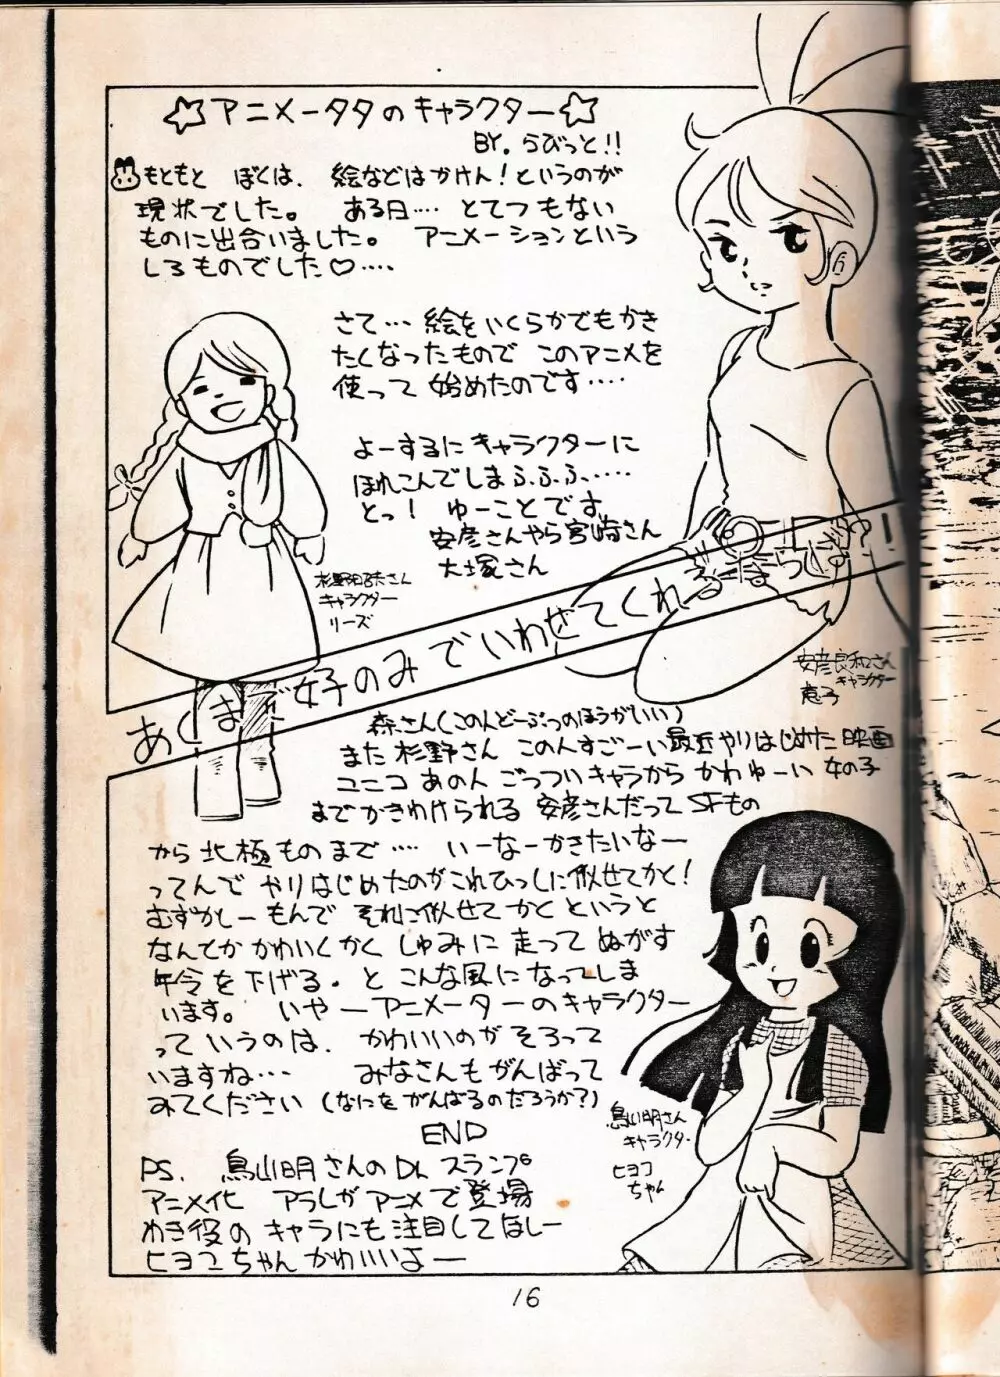 ☆アニメータタのキャラクター☆
BY. らびっと!!
もともと ぼくは、絵などはかけん!というのが
現状でした。 ある日‥‥ とてつもない
ものに出合いました。 アニメーションという
しろものでした♡‥‥
さて‥‥ 絵をいくらかでもかき
たくなったもので このアニメを
使って 始めたのです‥‥
よーするにキャラクターに
ほれこんでしまふ、ふ、ふ、‥‥‥
とっ! ゆーことです。
安彦さんやら宮崎さん
大塚さん
さん
キャラクター
リーズ
あくまで好のみでいわせてくれる ならしば!!
安彦良和さん
キャラクター
恵子
森さん(この人どーぶつのほうがいい)
また杉野さん この人すごーい最近やりはじめた映画
ユニコ あの人 ごっついキャラから かわゆーい 女の子
までかきわけられる 安彦さんだって SFもの
から北極ものまで‥‥ いーなーかきたいなー
ってんで やりはじめたのがこれひっしに似せてかく!
むずかしーもんで それに似せて かくというと
なんてか かわいくかく しゅみに 走って ぬがす
年令を下げる。と こんな風になってしま
います。 いやーアニメーターのキャラクター
っていうのは、 かわいいのがそろって
いますね‥‥ みなさんもがんばって
みてください (なにをがんばるのだろうか?)
END
PS. 鳥山明さんのDr. スランプ
アニメ化 アラレがアニメで登場
わき役のキャラにも注目してほしー
ヒヨコちゃんかわいいよー
鳥山明さん
キャラクター
ヒヨコ
ちゃん
16